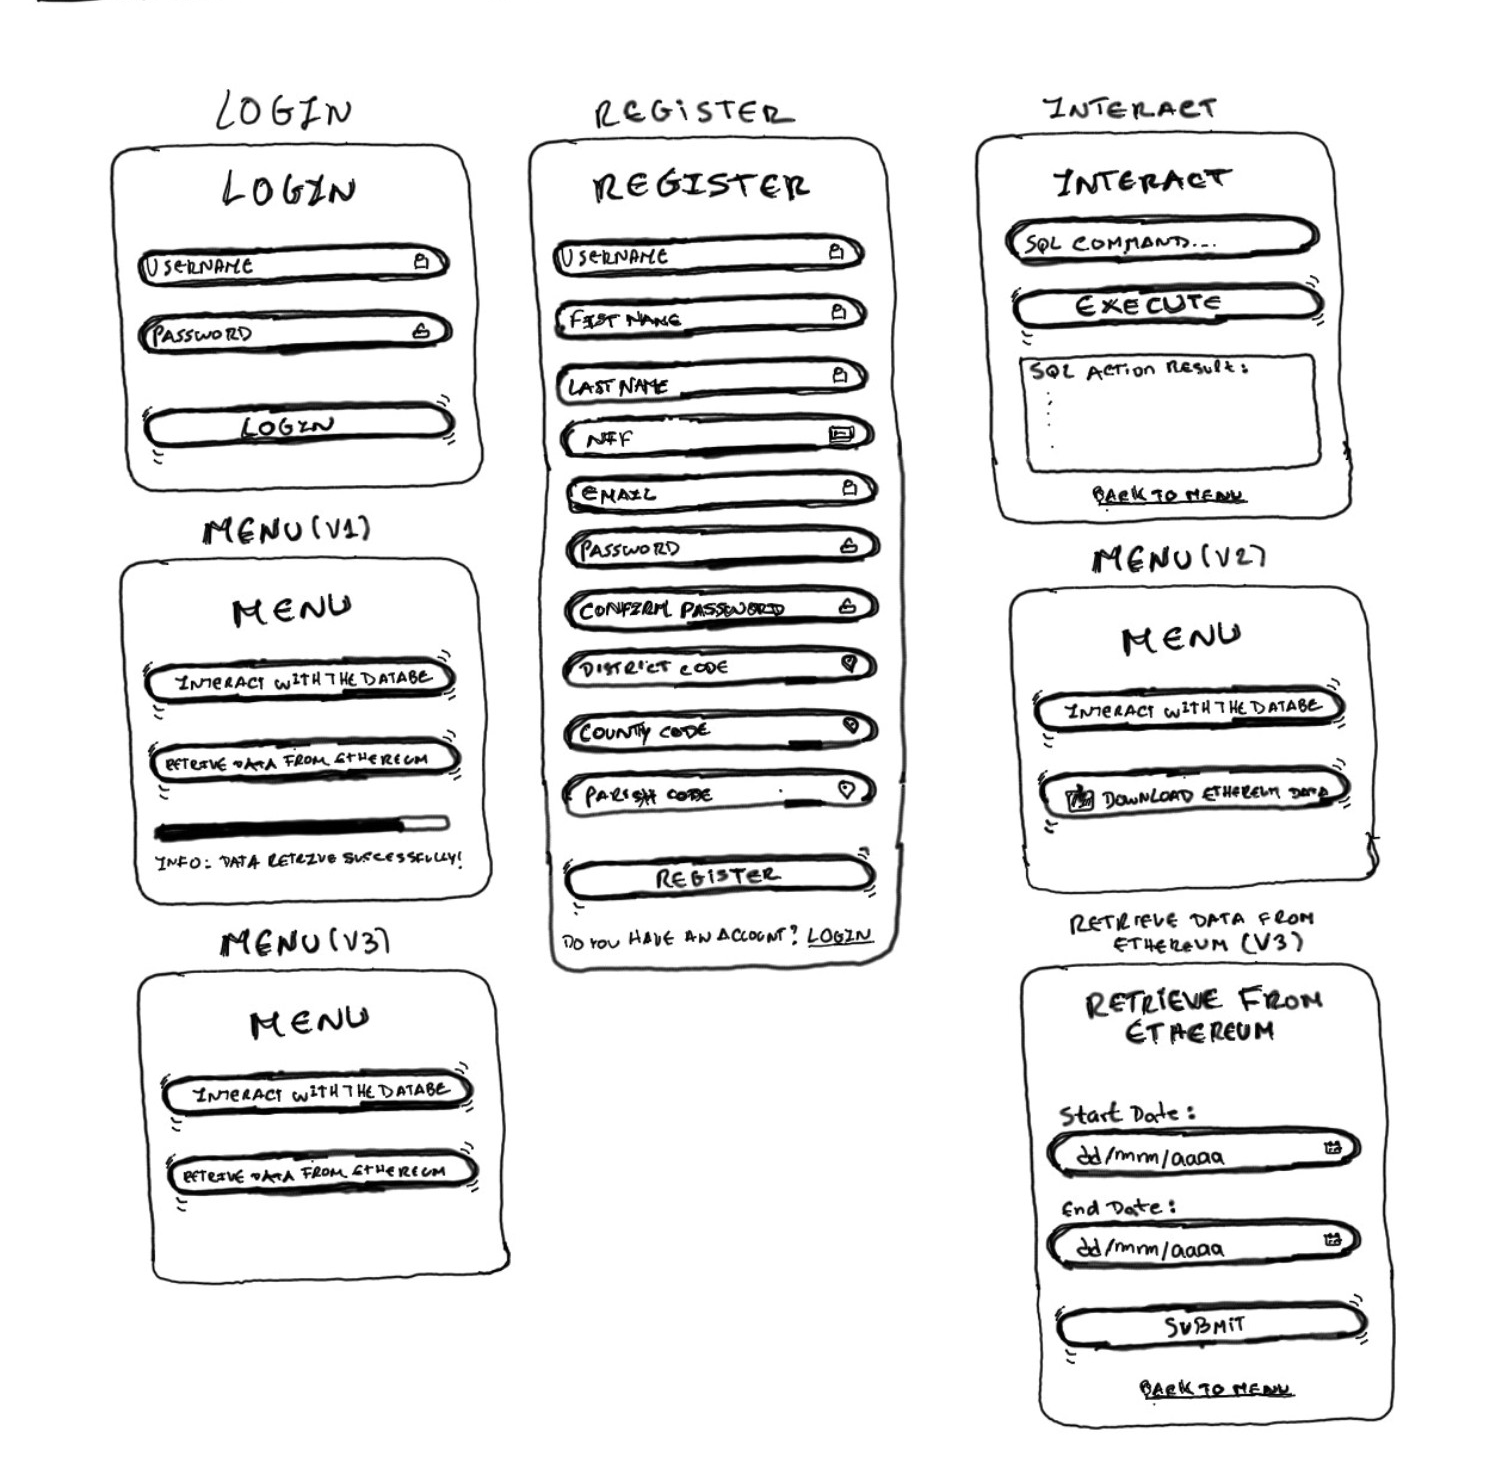 LOGIN
LOGIN
USERNAME
PASSWORD
LOGIN
MENU (V1)
MENU
INTERACT WITH THE DATABE
RETRIVE DATA FROM ETHEREUM
INFO: DATA RETRIVE SUCCESSFULLY!
MENU (V3)
MENU
INTERACT WITH THE DATABE
RETRIVE DATA FROM ETHEREUM
REGISTER
REGISTER
USERNAME
FIST NAME
LAST NAME
NIF
EMAIL
PASSWORD
CONFIRM PASSWORD
DISTRICT CODE
COUNTY CODE
PARISH CODE
REGISTER
DO YOU HAVE AN ACCOUNT? LOGIN
INTERACT
INTERACT
SQL COMMAND...
EXECUTE
SQL ACTION RESULT:
BACK TO MENU
MENU (V2)
MENU
INTERACT WITH THE DATABE
DOWNLOAD ETHEREUM DATA
RETRIEVE DATA FROM
ETHEREUM (V3)
RETRIEVE FROM
ETHEREUM
Start Date:
dd/mm/aaaa
End Date:
dd/mm/aaaa
SUBMIT
BACK TO MENU